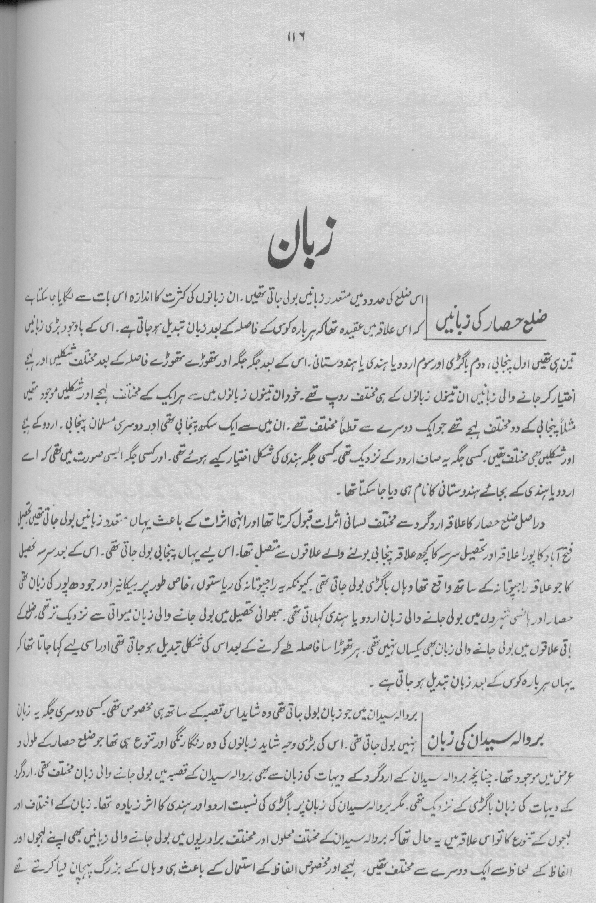 ۱۱۶
زبان
ضلع حصار کی زبانیں
اس ضلع کی حدود میں متعدد زبانیں بولی جاتی تھیں۔ ان زبانوں کی کثرت کا اندازہ اس بات سے لگایا جا سکتا ہے
کہ اس علاقہ میں عقیدہ تھا کہ ہر بارہ کوس کے فاصلہ کے بعد زبان تبدیل ہو جاتی ہے۔ اس کے باوجود بڑی زبانیں
تین ہی تھیں اول پنجابی، دوم باگڑی اور سوم اردو یا ہندی یا ہندوستانی۔ اس کے بعد جگہ جگہ اور تھوڑے تھوڑے فاصلہ کے بعد مختلف شکلیں اور لہجے
اختیار کر جانے والی زبانیں ان تینوں زبانوں کے ہی مختلف روپ تھے۔ خود ان تینوں زبانوں میں سے ہر ایک کے مختلف لہجے اور شکلیں موجود تھیں
مثلاً پنجابی کے دو مختلف لہجے تھے جو ایک دوسرے سے قطعاً مختلف تھے۔ ان میں سے ایک سکھ پنجابی تھی اور دوسری مسلمان پنجابی۔ اردو کے لہجے
اور شکلیں بھی مختلف تھیں۔ کسی جگہ یہ صاف اردو کے نزدیک تھی کسی جگہ ہندی کی شکل اختیار کیے ہوئے تھی۔ اور کسی جگہ ایسی صورت میں تھی کہ اسے
اردو یا ہندی کے بجائے ہندوستانی کا نام ہی دیا جا سکتا تھا۔
دراصل ضلع حصار کا علاقہ اردگرد سے مختلف لسانی اثرات قبول کرتا تھا اور انہی اثرات کے باعث یہاں متعدد زبانیں بولی جاتی تھیں تحصیل
فتح آباد کا پورا علاقہ اور تحصیل سرسہ کا کچھ علاقہ پنجابی بولنے والے علاقوں سے متصل تھا۔ اس لیے یہاں پنجابی بولی جاتی تھی۔ اس کے بعد سرسہ تحصیل
کا جو علاقہ راجپوتانہ کے ساتھ واقع تھا وہاں باگڑی بولی جاتی تھی۔ کیونکہ یہ راجپوتانہ کی ریاستوں، خاص طور پر بیکانیر اور جودھپور کی زبان تھی
حصار اور ہانسی شہروں میں بولی جانے والی زبان اردو یا ہندی کہلاتی تھی۔ بھوانی تحصیل میں بولی جانے والی زبان میواتی سے نزدیک تر تھی، ضلع کے
باقی علاقوں میں بولی جانے والی زبان بھی یکساں نہیں تھی۔ ہر تھوڑا سا فاصلہ طے کرنے کے بعد اس کی شکل تبدیل ہو جاتی تھی اور اسی لیے کہا جاتا تھا کہ
یہاں ہر بارہ کوس کے بعد زبان تبدیل ہو جاتی ہے۔
بروالہ سیدان کی زبان
بروالہ سیدان میں جو زبان بولی جاتی تھی وہ شاید اس قصبہ کے ساتھ ہی مخصوص تھی۔ کسی دوسری جگہ یہ زبان
نہیں بولی جاتی تھی۔ اس کی بڑی وجہ شاید زبانوں کی وہ رنگا رنگی اور تنوع ہی تھا جو ضلع حصار کے طول و
عرض میں موجود تھا۔ چنانچہ بروالہ سیدان کے اردگرد کے دیہات کی زبان سے بھی بروالہ سیدان کے قصبہ میں بولی جانے والی زبان مختلف تھی۔ اردگرد
کے دیہات کی زبان باگڑی کے نزدیک تھی۔ مگر بروالہ سیدان کی زبان پر باگڑی کی نسبت اردو اور ہندی کا اثر زیادہ تھا۔ زبان کے اختلاف اور
لہجوں کے تنوع کا تو اس علاقہ میں یہ حال تھا کہ بروالہ سیدان کے مختلف محلوں اور مختلف برادریوں میں بولی جانے والی زبانیں بھی اپنے لہجوں اور
الفاظ کے لحاظ سے ایک دوسرے سے مختلف تھیں۔ لہجے اور مخصوص الفاظ کے استعمال کے باعث ہی وہاں کے بزرگ پہچان لیا کرتے تھے